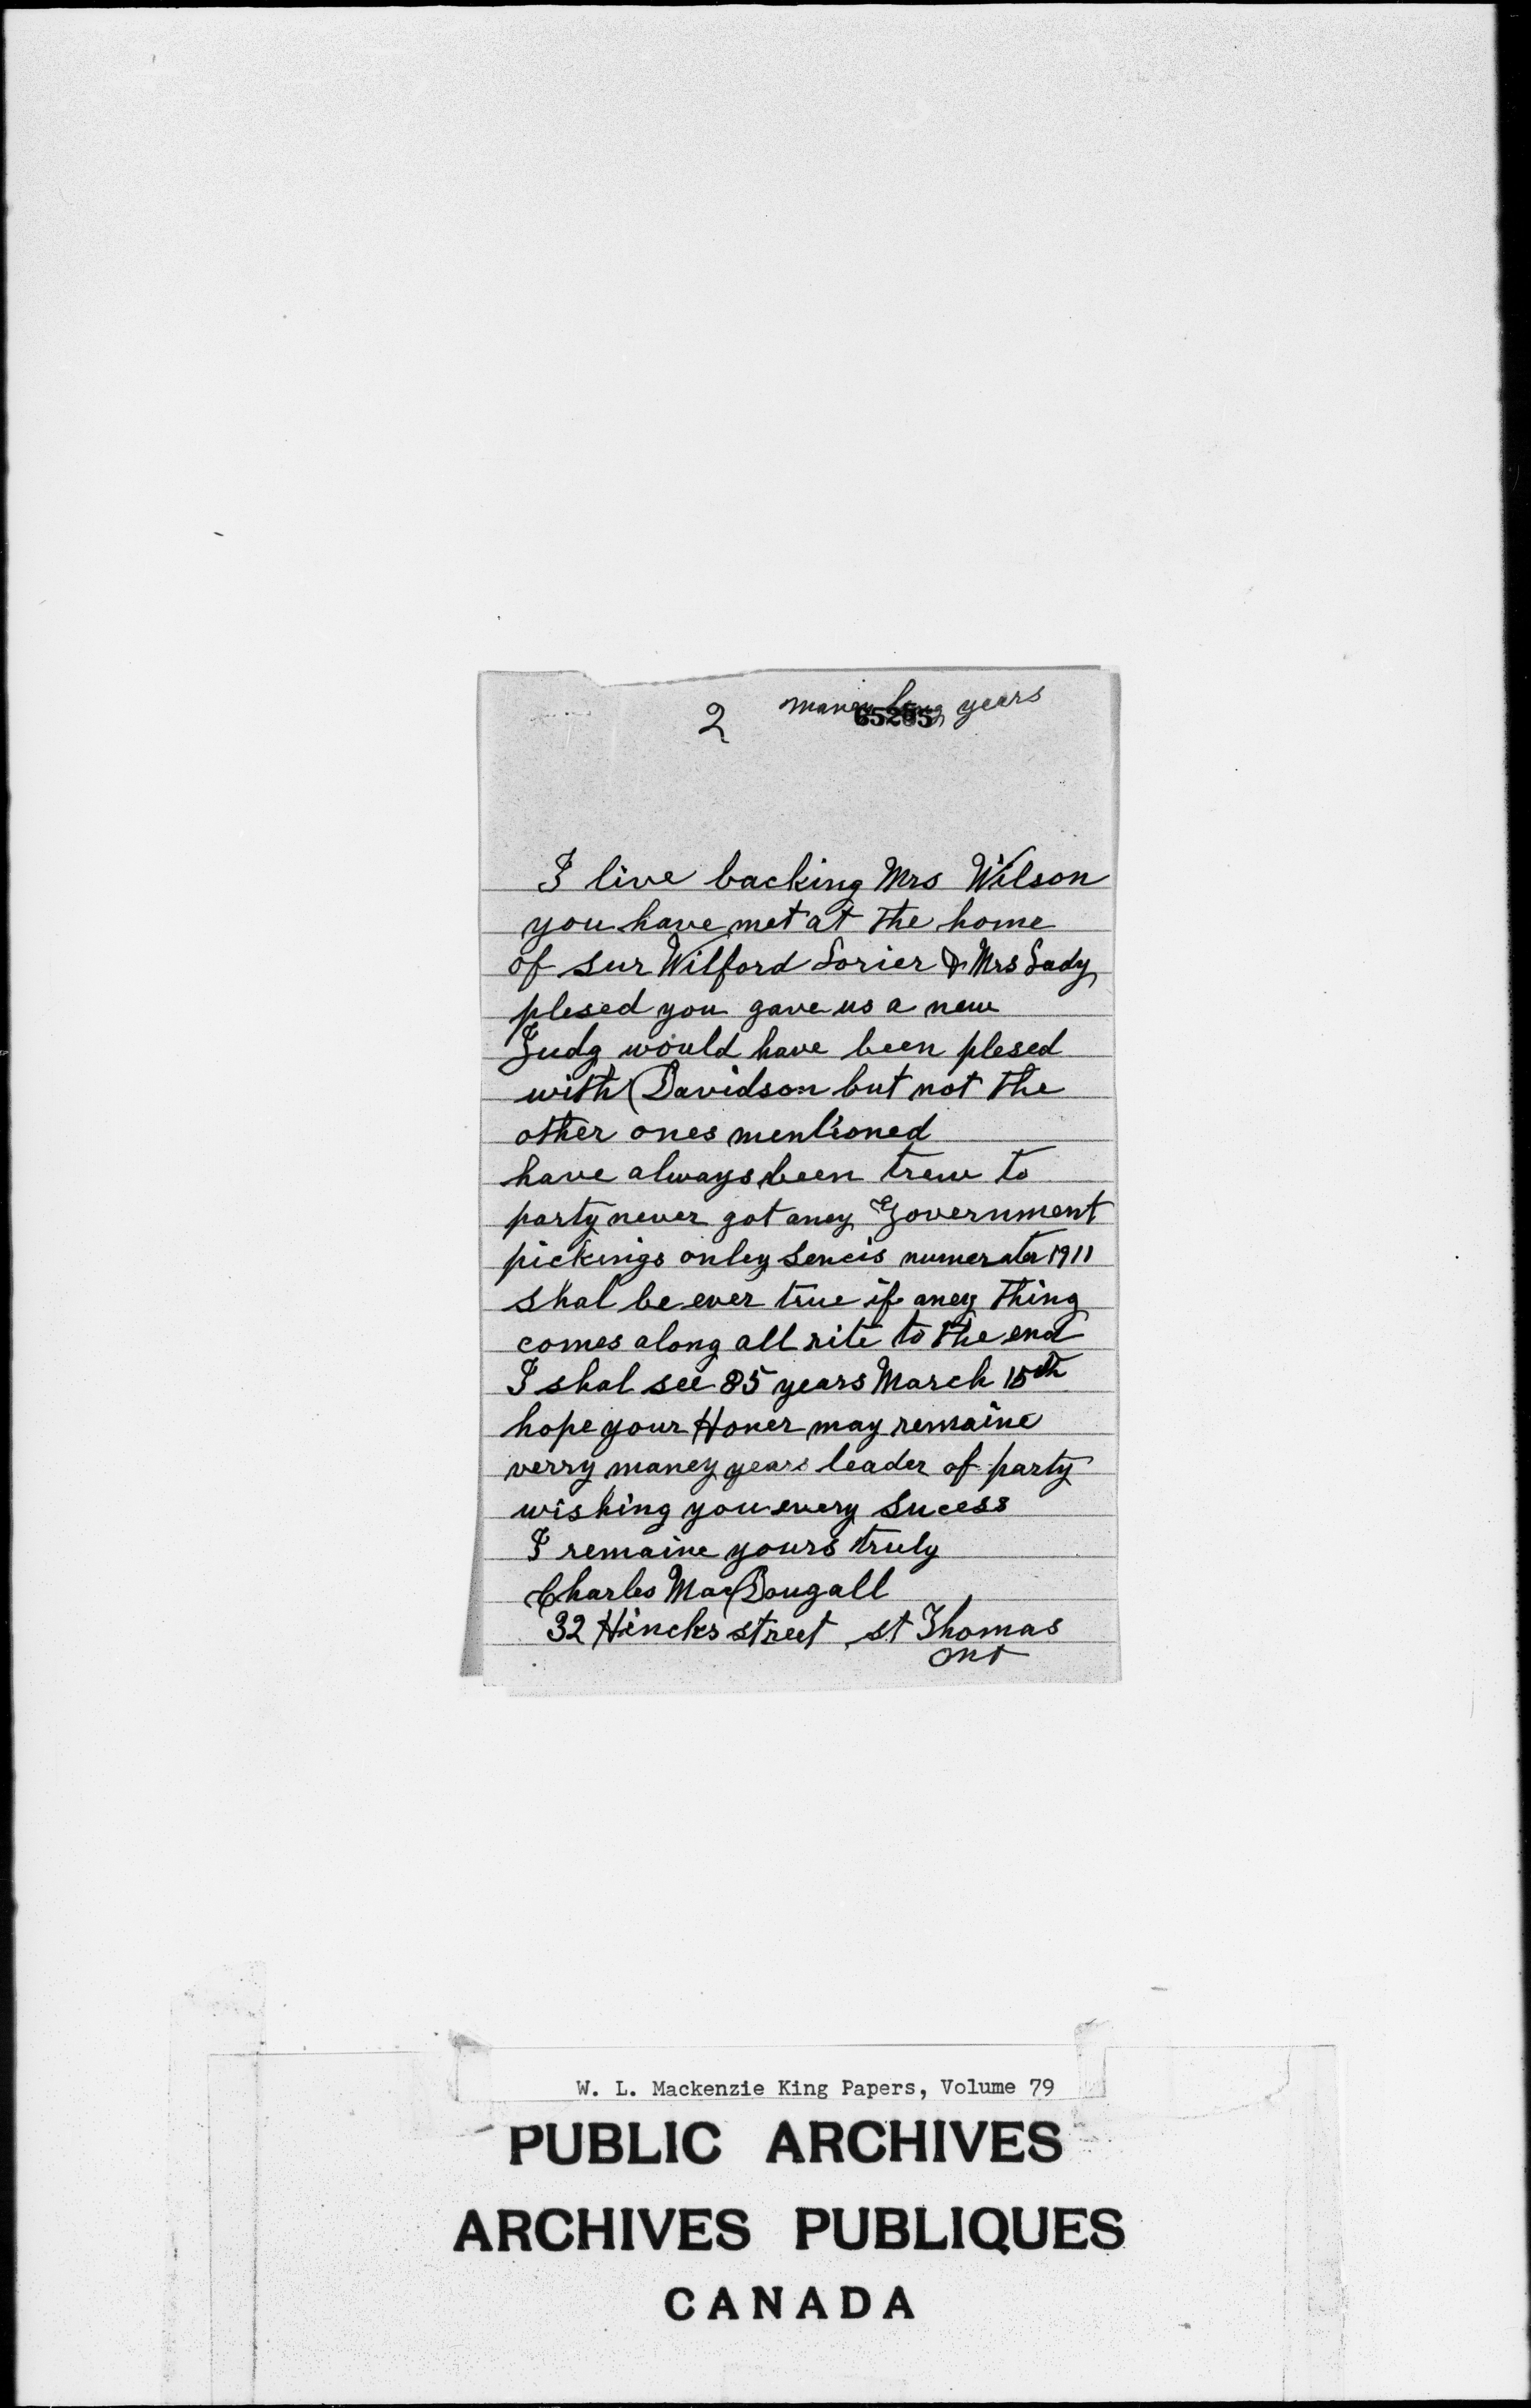 2 maney long years
65255
I live backing Mrs Wilson
you have met at the home
of sur Wilford Lorier & Mrs Lady
plesed you gave us a new
Judg would have been plesed
with Davidson but not the
other ones mentioned
have always been trew to
party never got aney Government
pickings onley Sencis numerater 1911
shal be ever true if aney thing
comes along all rite to the end
I shal see 85 years March 15th
hope your Honer may remaine
verry maney years leader of party
wishing you every sucess
I remaine yours truly
Charles MacDougall
32 Hincks street st Thomas
ont
W. L. Mackenzie King Papers, Volume 79
PUBLIC ARCHIVES
ARCHIVES PUBLIQUES
CANADA